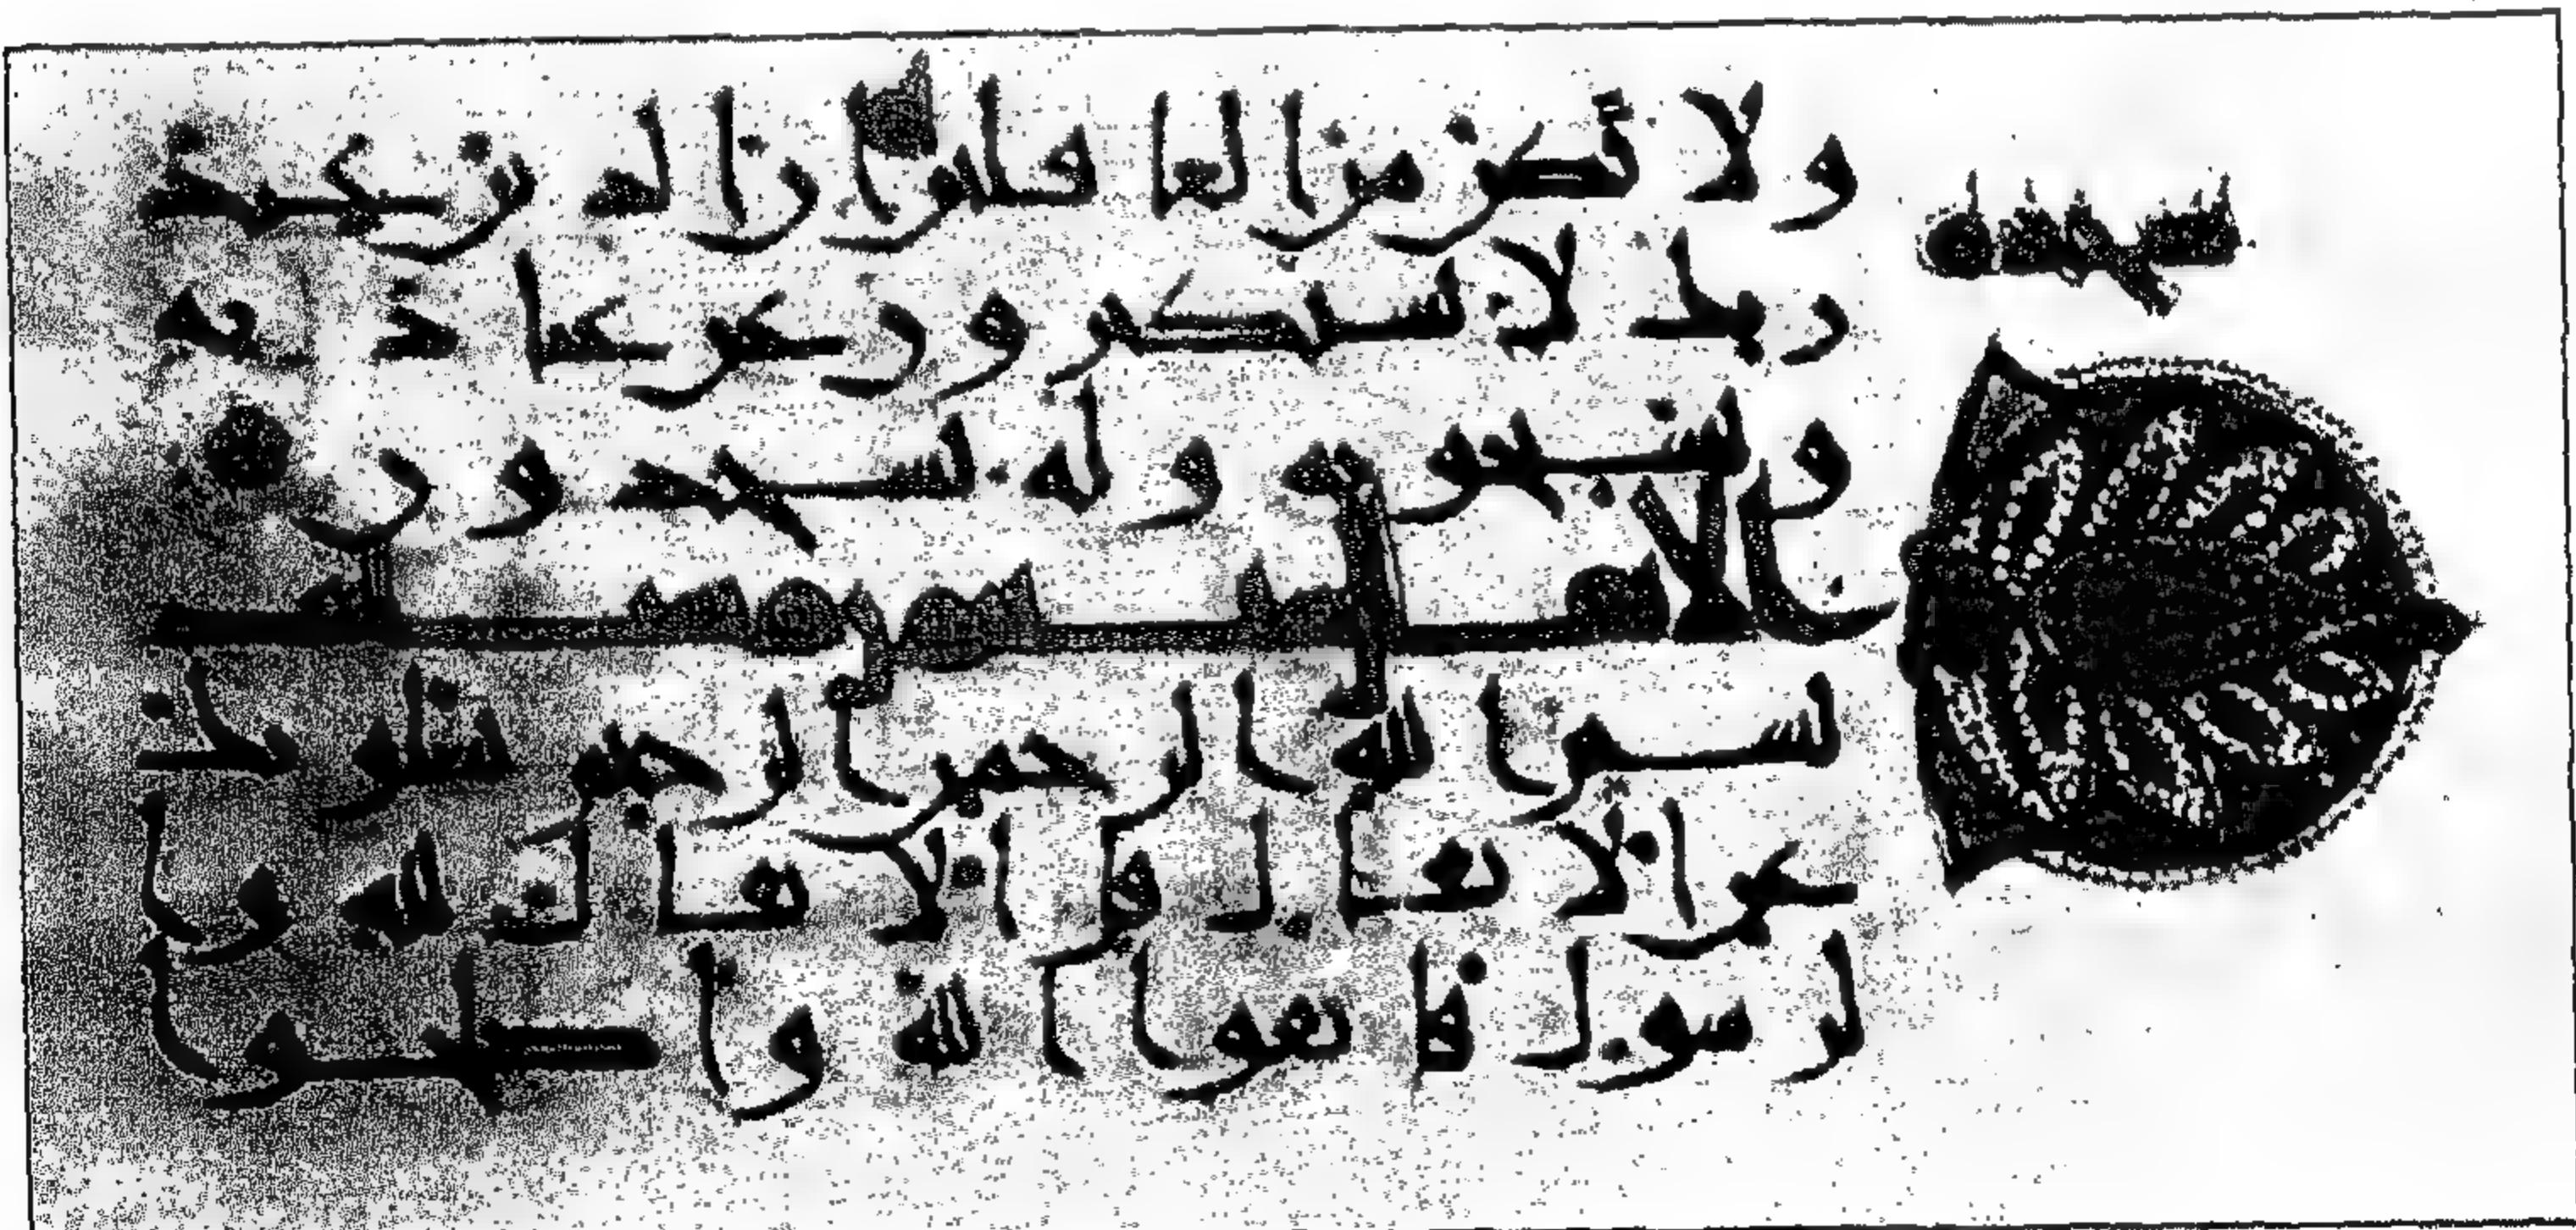 سجدة
ولا تكن من الغافلين ان الذين عند
ربك لا يستكبرون عن عبادته
ويسبحونه وله يسجدون
الانفال
بسم الله الرحمن الرحيم يسلونك
عن الانفال قل الانفال لله وا
لرسول فاتقوا الله واصلحوا